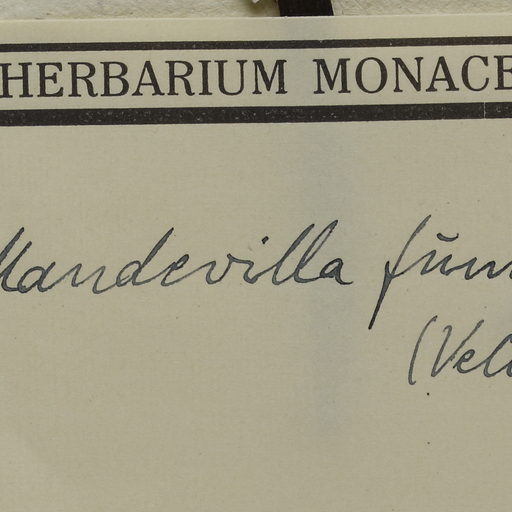 HERBARIUM MONACE
Mandevilla fun
(Vell